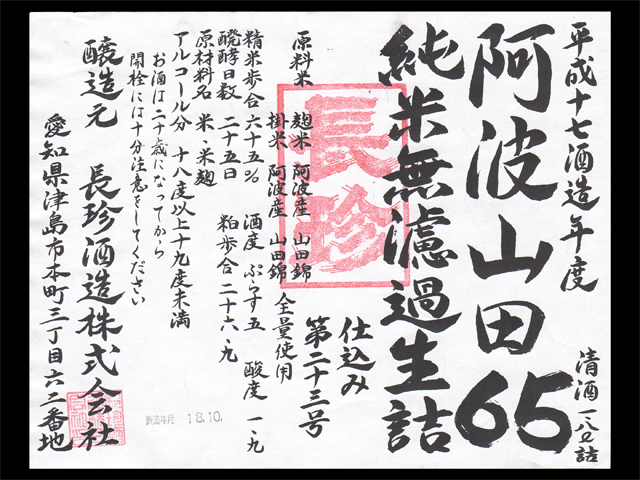 平成十七酒造年度
清酒一、八〇詰
阿波山田65
純米無濾過生詰
仕込み
第二十三号
長珍
原料米 麹米 阿波産 山田錦
掛米 阿波産 山田錦 全量使用
精米歩合 六十五% 酒度 ぷらす五 酸度 一・九
醗酵日数 二十五日 粕歩合 二十六・九
原材料名 米・米麹
アルコール分 十八度以上十九度未満
お酒は二十歳になってから
開栓には十分注意をしてください
製造年月 18.10.
醸造元 長珍酒造株式会社
愛知県津島市本町三丁目六二番地